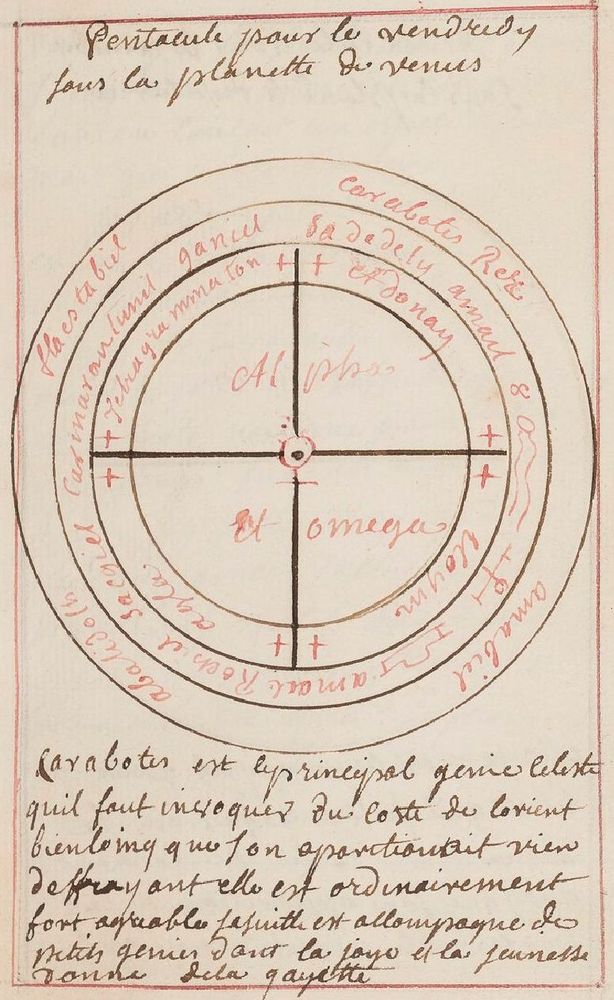 Pentacule pour le vendredy
sous la planette de venus
Carabotes Rex
amabiel
abalidoth
flaestabiel
Sadedely amael
amael Rochiel Sacgiel Carmaron tuniel ganiel
Tetragrammaton
Adonay
Eloym
agla
Alpha
et omega
Carabotes est le principal genie Celeste
quil faut invoquer du coste de lorient
bien loing que son aparition ait rien
deffrayant elle est ordinairement
fort agreable sa suitte est accompagne de
petits genies dont la joye et la jeunesse
donne de la gayette